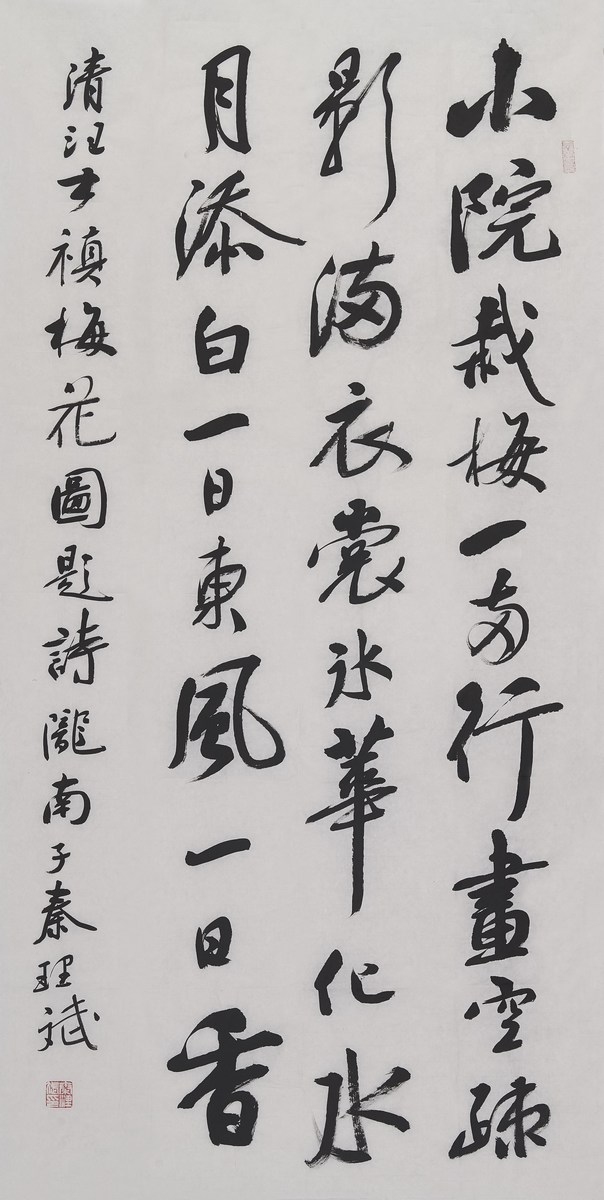 小院栽梅一両行畫空疎
影满衣裳冰華化水
月添白一日東風一日香
清汪士禛梅花圖題詩隴南子秦理斌